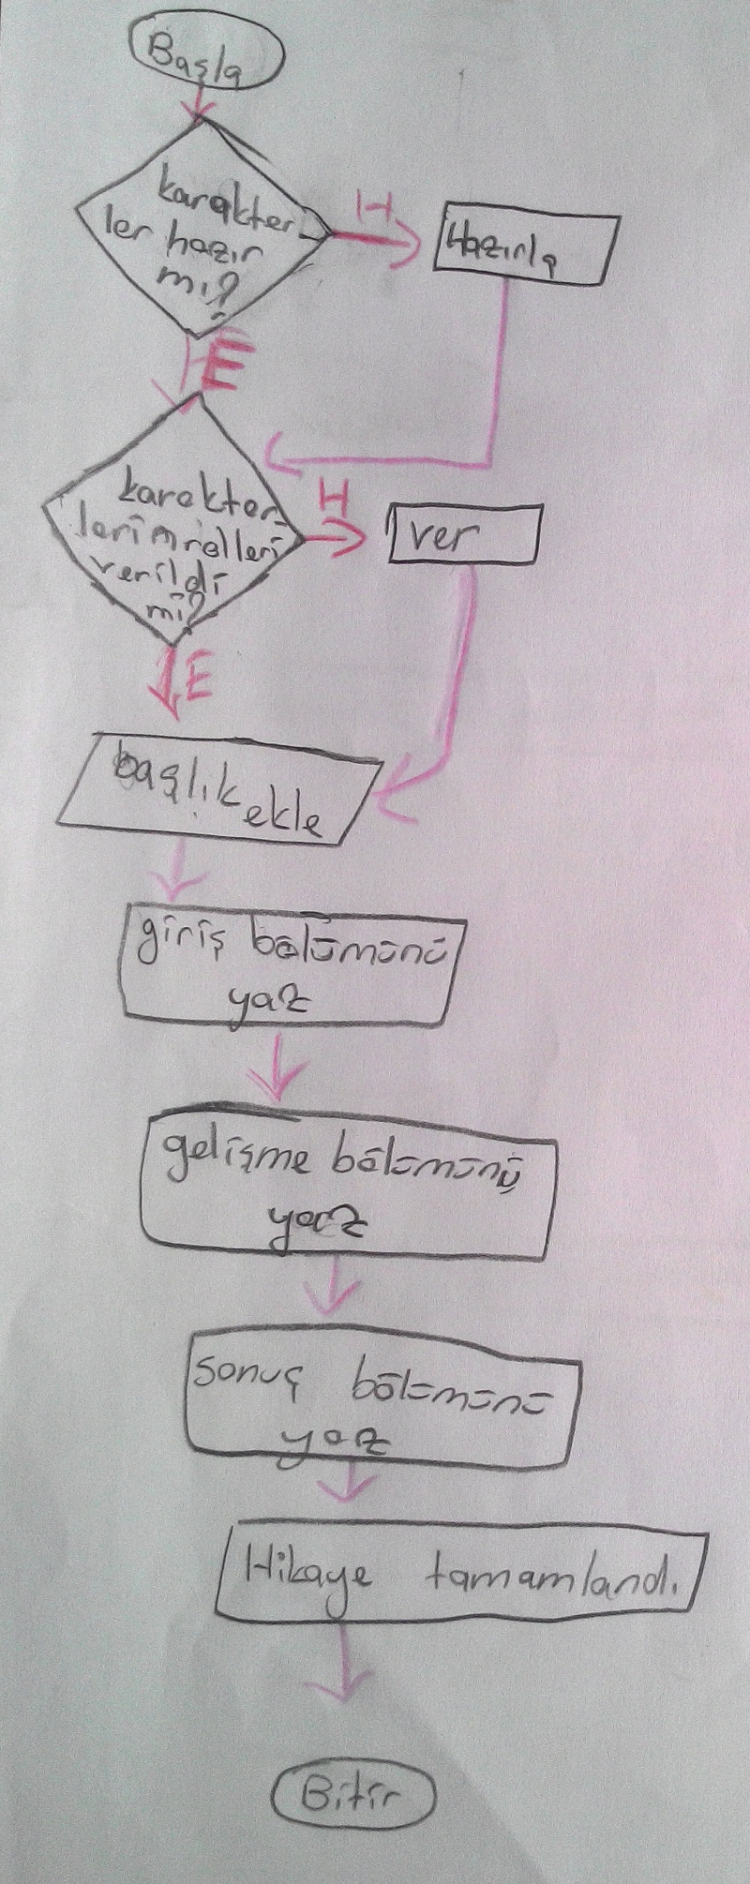 Başla
karakter
ler hazır
mı?
H
Hazırla
E
karakter
lerin rolleri
verildi
mi?
H
ver
E
başlık ekle
giriş bölümünü
yaz
gelişme bölümünü
yaz
sonuç bölümünü
yaz
Hikaye tamamlandı.
Bitir